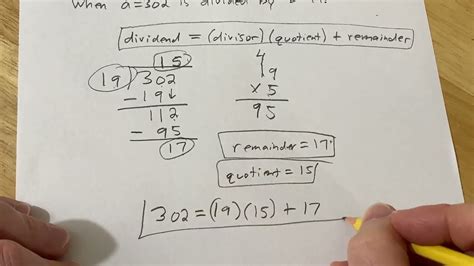 when a=302 is divided by
dividend = (divisor)(quotient) + remainder
15
19)302
-19↓
112
-95
17
4
19
×5
95
remainder = 17.
quotient = 15
302 = (19)(15) + 17